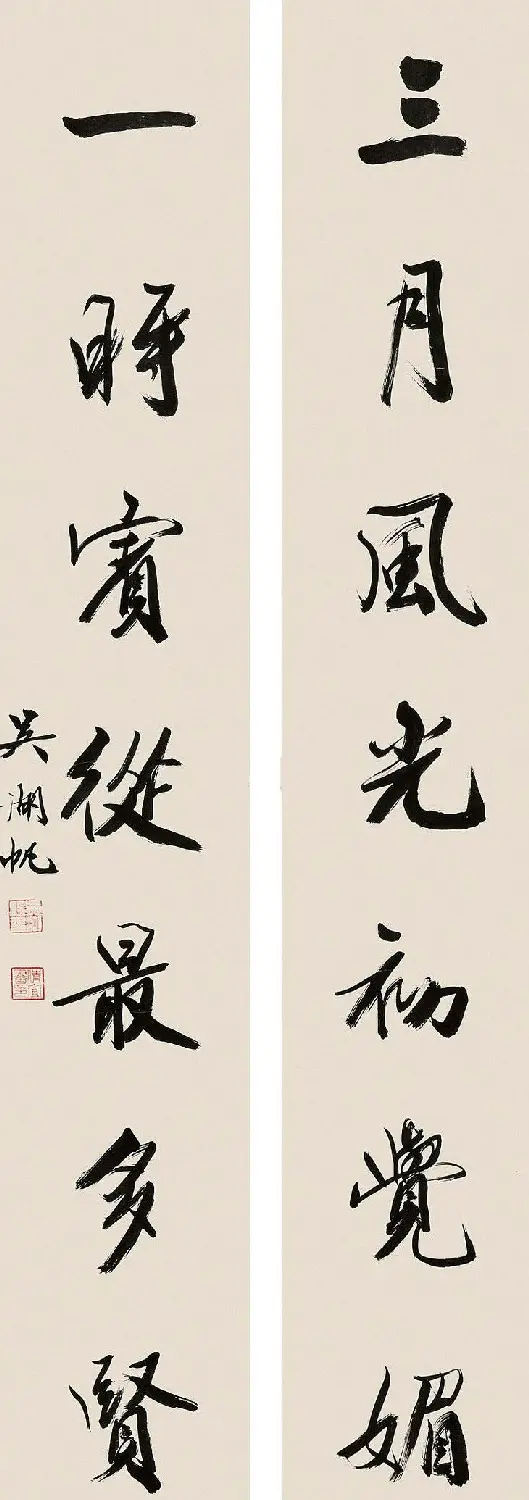 三月風光初覺媚
一時賓從最多賢
吳湖帆